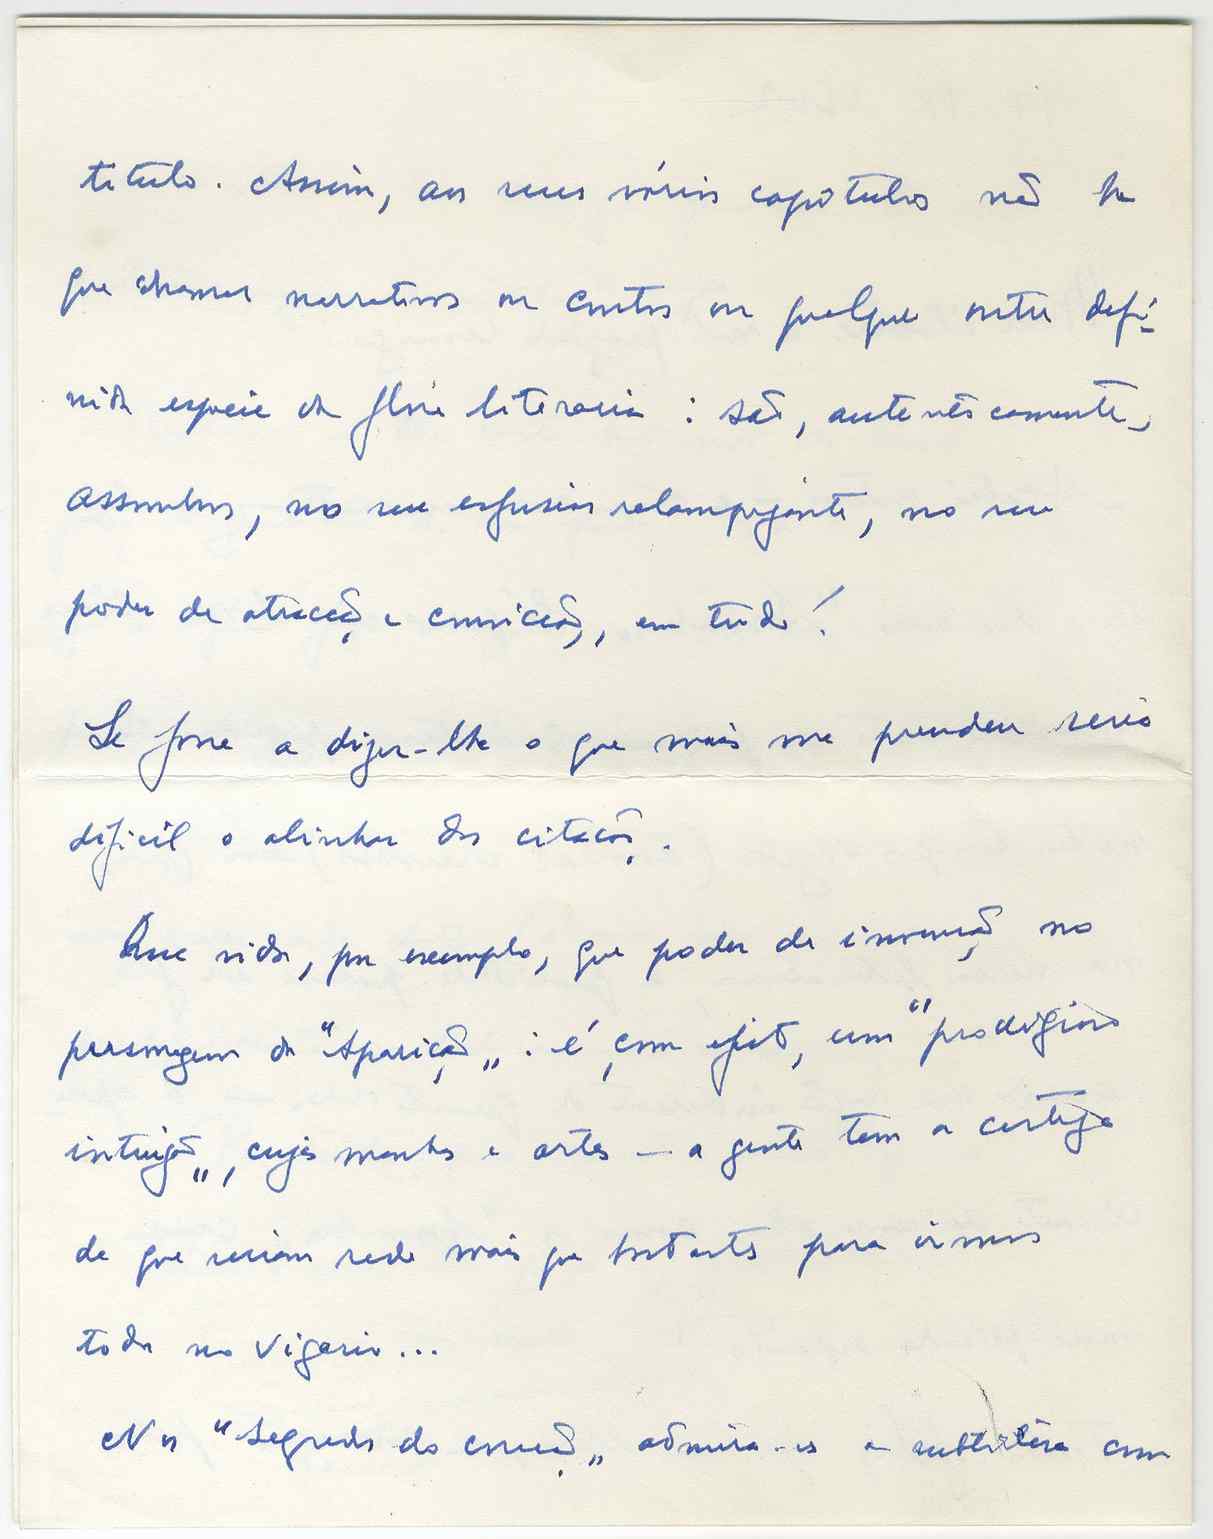 titulo. Assim, aos seus vários capitulos não ha
que chamar narrativas ou contos ou qualquer outra defi-
nida especie da flora literaria: são, autenticamente,
assombros, no seu esfusiar relampejante, no seu
poder de atracção e convicção, em tudo!
Se fosse a dizer-lhe o que mais me prendeu seria
dificil o alinhar das citações.
Que vida, por exemplo, que poder de invenção no
personagem da "Aparição": é, com efeito, um "prodigioso
intrujão", cujas manhas e artes - a gente tem a certeza
de que seriam rede mais que bastante para irmos
todos no vigario...
No "Segredo do coração" admira-se a subtileza com